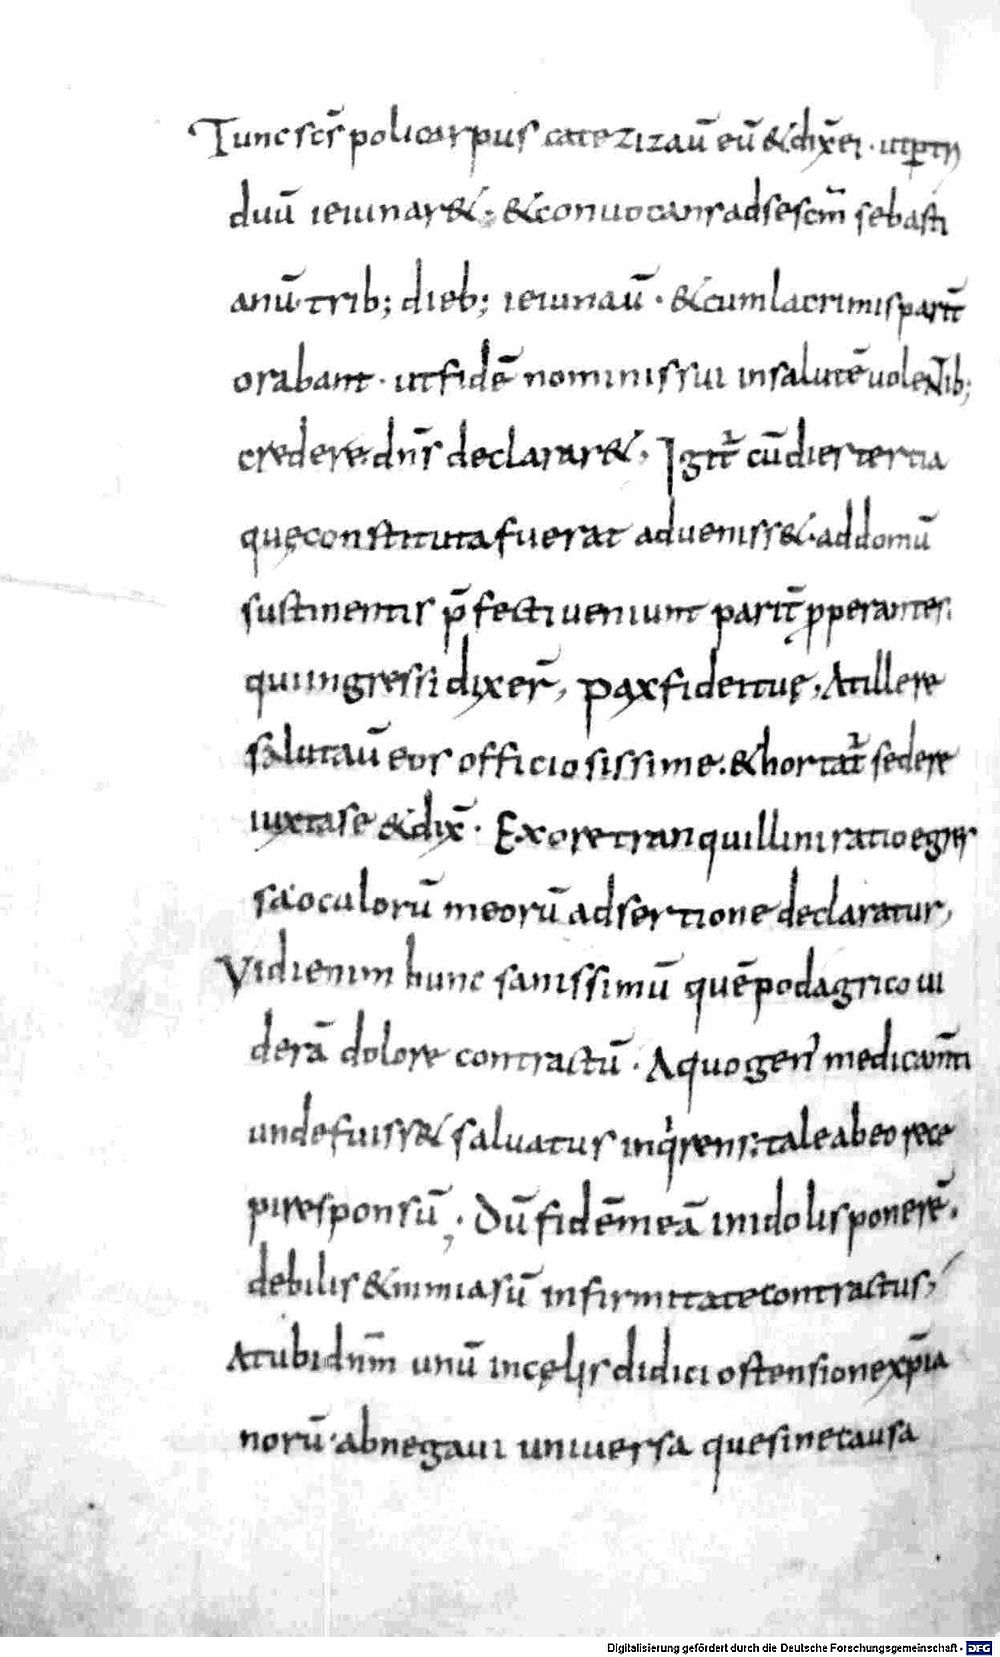 Tunc scs̄ policarpus catezizaū eū &dix̄ ei · ut ꝑ tri
duū ieiunar&; &conuocans ad se scm̄ sebasti
anū trib; dieb; ieiunaū · &cum lacrimis parit̄
orabant · ut fidē nominis sui in salutē uolentib;
credere dns̄ declarar&. Igit̄ cū dies tertia
quę constituta fuerat aduenis&· ad domū
sustinentis p̄fecti ueniunt parit̄ ꝓperantes.
qui ingressi dixer̄, pax fidei tuę. At ille re
salutaū eos officiosissime. &hortat̄ sedere
iuxta se &dix̄ · Ex ore tranquillini ratio egres
sa oculorū meorū adsertione declaratur,
Vidi enim hunc sanissimū quē podagrico ui
derā dolore contractū · A quo gen' medicam̄ti
unde fuiss& saluatus inqirens; tale ab eo rece
pi responsū; Dū fidē meā in idolis ponerē.
debilis &nimia sū infirmitate contractus;
At ubi dnm̄ unū in cęlis didici ostensione xp̄ia
norū· abnegaui uniuersa que sine causa
Digitalisierung gefördert durch die Deutsche Forschungsgemeinschaft - DFG